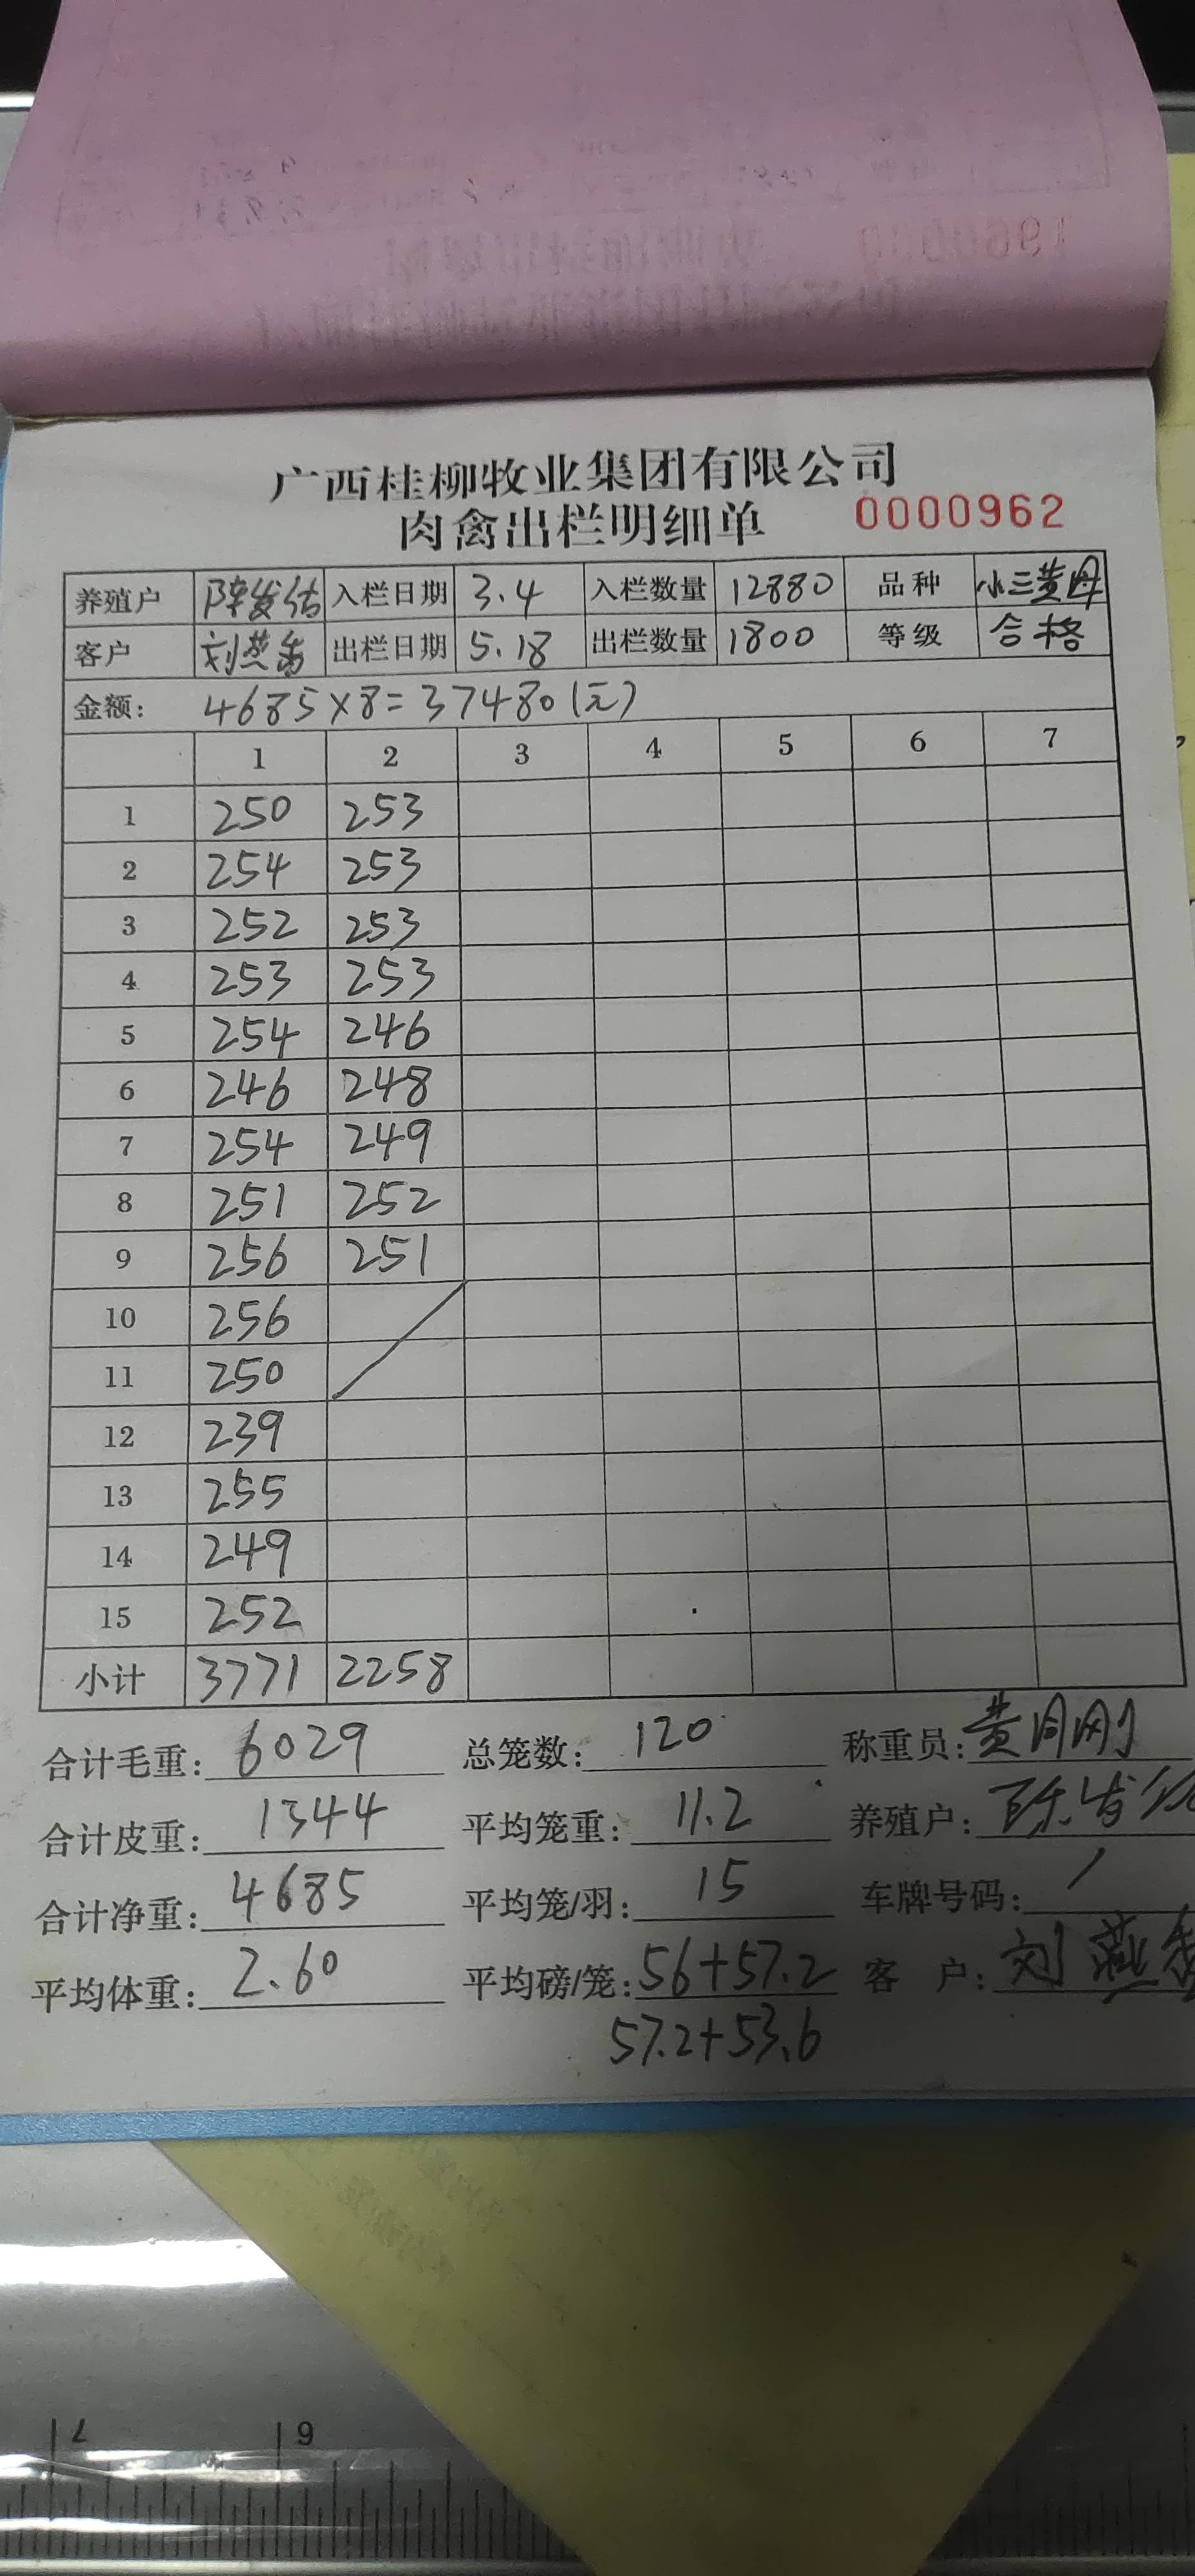 广西桂柳牧业集团有限公司
肉禽出栏明细单 0000962
养殖户 陈发估 入栏日期 3.4 入栏数量 12880 品种 小三黄母
客户 刘燕 出栏日期 5.18 出栏数量 1800 等级 合格
金额: 4685×8=37480(元)
1 2 3 4 5 6 7
1 250 253
2 254 253
3 252 253
4 253 253
5 254 246
6 246 248
7 254 249
8 251 252
9 256 251
10 256
11 250
12 239
13 255
14 249
15 252
小计 3771 2258
合计毛重: 6029 总笼数: 120 称重员: 黄刚
合计皮重: 1344 平均笼重: 11.2 养殖户: 陈发
合计净重: 4685 平均笼/羽: 15 车牌号码: /
平均体重: 2.60 平均磅/笼: 56+57.2 客户: 刘燕
57.2+53.6
7 6